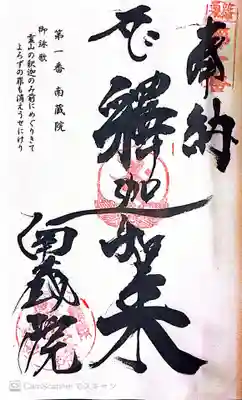 奉納
釋迦如来
南蔵院
第一番 南蔵院
御詠歌
霊山の釈迦のみ前にめぐりきて
よろずの罪も消えうせにけり
CamScanner でスキャン